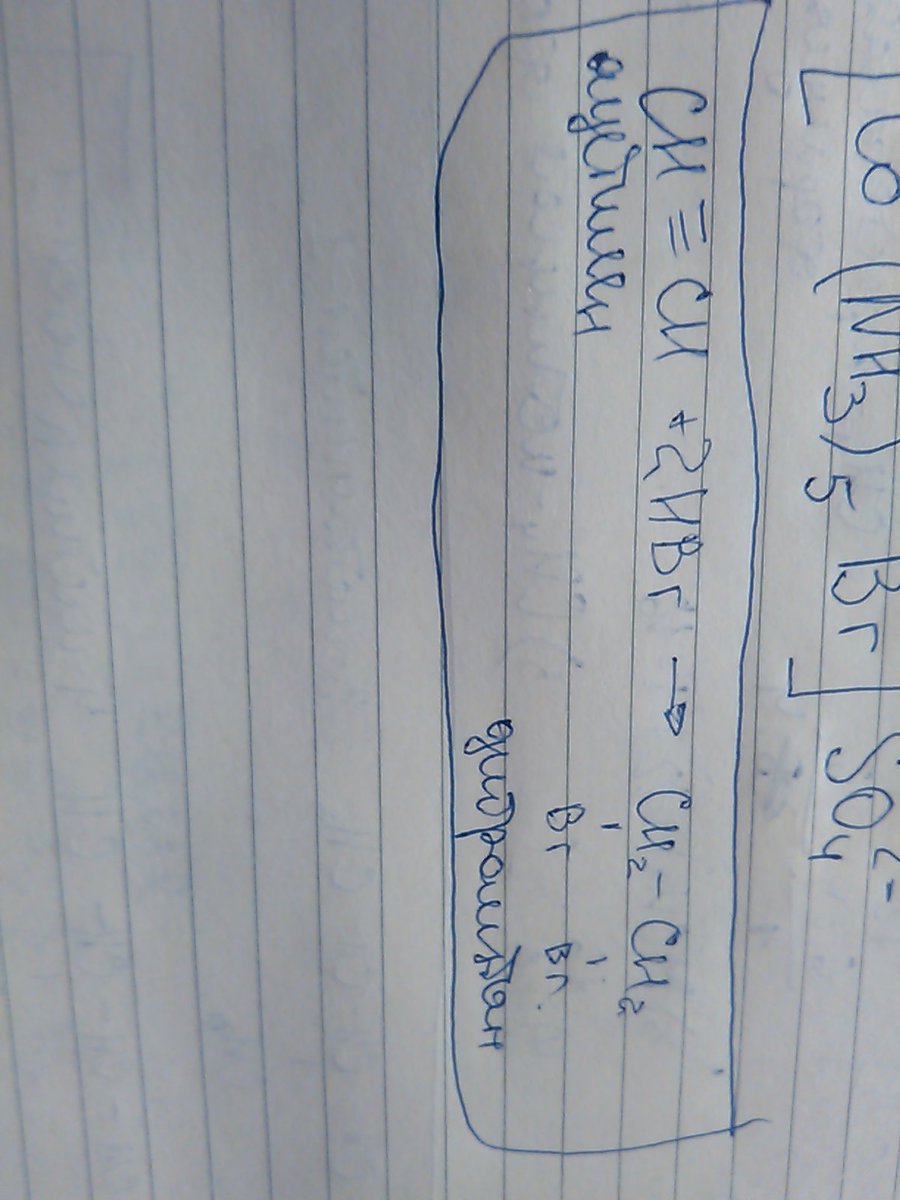 [Co(NH3)5Br]SO4²⁻
CH≡CH + 2HBr → CH₂–CH₂
ацетилен
Br Br
дибромэтан